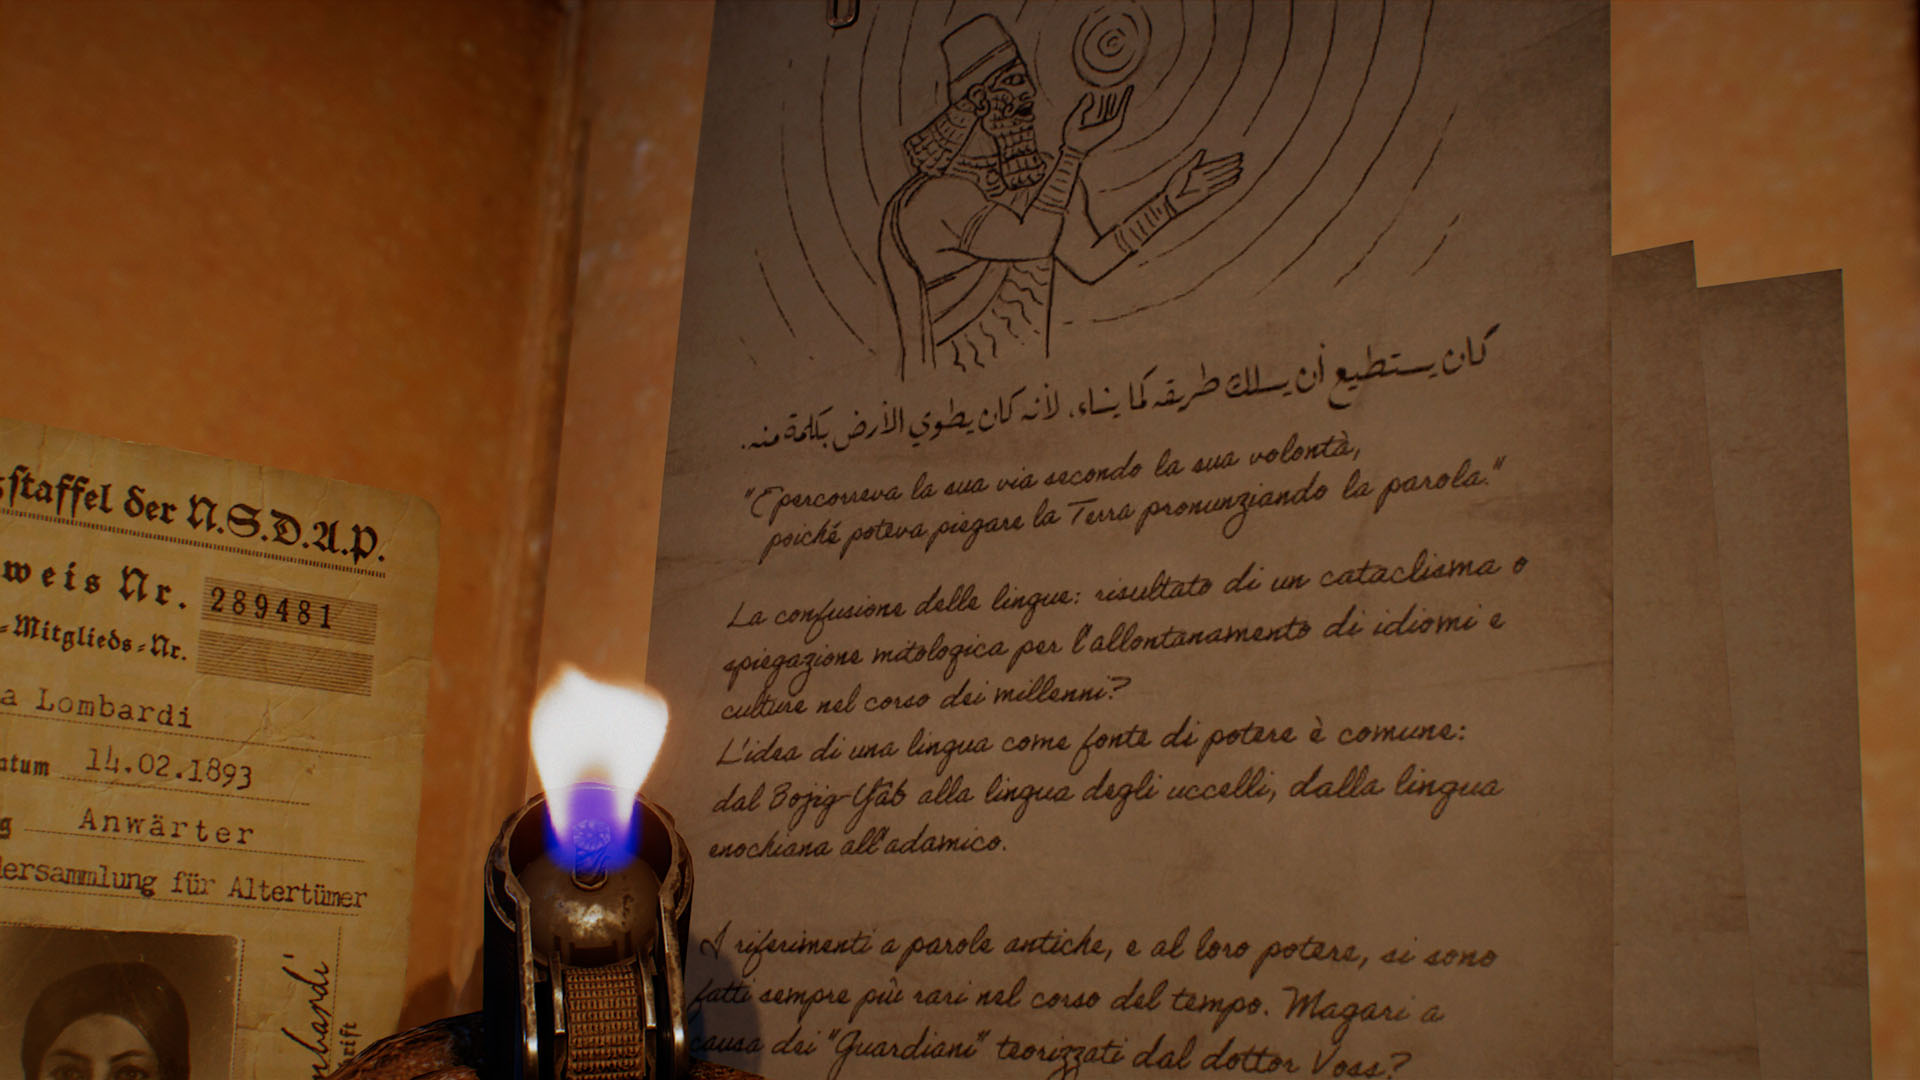 staffel der N.S.D.A.P.
weis Nr. 289481
=Mitglieds=Nr.
a Lombardi
atum 14.02.1893
g Anwärter
dersammlung für Altertümer
كان يستطيع أن يسلك طريقه كما يشاء، لأنه كان يطوي الأرض بكلمة منه.
"E percorreva la sua via secondo la sua volontà,
poiché poteva piegare la Terra pronunziando la parola."
La confusione delle lingue: risultato di un cataclisma o
spiegazione mitologica per l'allontanamento di idiomi e
culture nel corso dei millenni?
L'idea di una lingua come fonte di potere è comune:
dal Bojig-Yāb alla lingua degli uccelli, dalla lingua
enochiana all'adamico.
I riferimenti a parole antiche, e al loro potere, si sono
fatti sempre più rari nel corso del tempo. Magari a
causa dei "Guardiani" teorizzati dal dottor Voss?